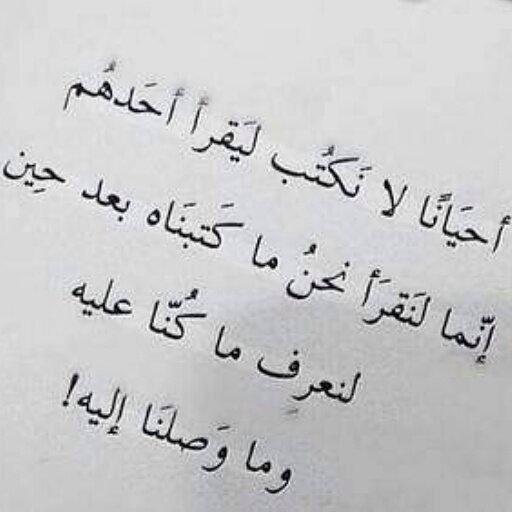 أحيَانًا لا نَكتُب ليَقرأ أحَدهُم
إنّما لنَقرَأ نحنُ ما كَتبنَاه بعد حِين
لنعرِف ما كُنّا عليه
وما وَصلنَا إليه!